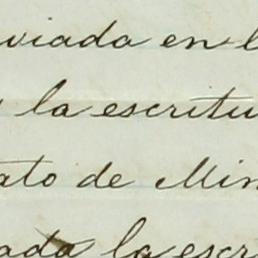 viada en l
la escritu
ato de Min
ada la escr